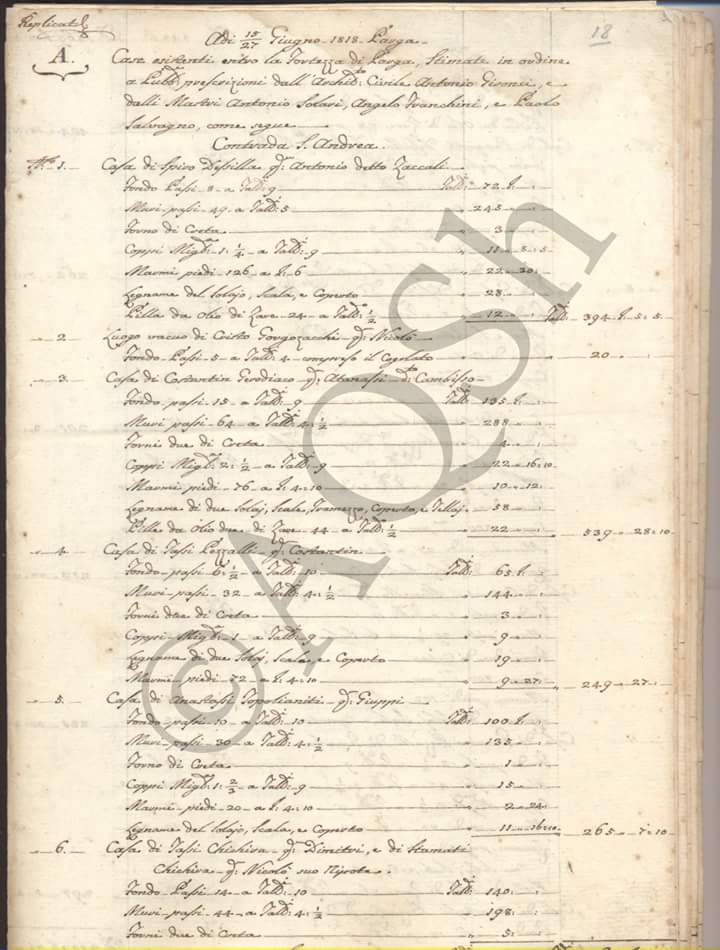 Replicata
18
A.
Adi 15/27 Giugno 1818 Parga
Case esistenti entro la Fortezza di Parga, Stimate in ordine
a Pubb: prescrizioni dall' Archid: Civile Antonio Gironci, e
dalli Mastri Antonio Solari, Angelo Franchini, e Paolo
Salvagno, come segue
Contrada S. Andrea.
No. 1. Casa di Spiro Dessilla q: Antonio detto Zaccali
Fondo Passi 8 a Tall: 9 Tall: 72 L:
Muri passi 49 a Tall: 5 245
Forno di Creta 3
Coppi Migl: 1 1/4 a Tall: 9 11 " 5 " 5
Marmi piedi 126 a L: 6 22 " 30
Legname del Solajo, Scala, e Coperto 28
Pilla da Olio di Zare 24 a Tall: 1/2 12 Tall: 394 L: 5 : 5
2. Luogo vacuo di Cristo Gorgozacchi q: Nicolò
Fondo Passi 5 a Tall: 4 compreso il Cognato 20
3. Casa di Costantin Gerodiaco q: Atanassi d: Cambisso
Fondo passi 15 a Tall: 9 Tall: 135 L:
Muri passi 64 a Tall: 4 1/2 288
Forni due di Creta 4
Coppi Migl: 2 1/2 a Tall: 9 22 " 16 : 10
Marmi piedi 76 a L: 4 : 10 10 " 12
Legname di due Solaj, Scale, Tramezzo, Coperto, e Tellaj 58
Pille da Olio due di Zare 44 a Tall: 1/2 22 539 " 28 : 10
4. Casa di Tassi Pezzalli q: Costantin
Fondo passi 6 1/2 a Tall: 10 Tall: 65 L:
Muri passi 32 a Tall: 4 1/2 144
Forni due di Creta 3
Coppi Migl: 1 a Tall: 9 9
Legname di due Solaj, Scala, e Coperto 19
Marmi piedi 72 a L: 4 : 10 9 " 27 249 " 27
5. Casa di Anastasi Toptianiti q: Giuppi
Fondo passi 10 a Tall: 10 Tall: 100 L:
Muri passi 30 a Tall: 4 1/2 135
Forno di Creta 1
Coppi Migl: 1 2/3 a Tall: 9 15
Marmi piedi 20 a L: 4 : 10 2 " 24
Legname del Solajo, Scala, e Coperto 11 " 16 : 10 265 " 7 : 10
6. Casa di Tassi Chichira q: Dimitri, e di Stamati
Chichira q: Nicolò suo Nipote
Fondo Passi 14 a Tall: 10 Tall: 140
Muri passi 44 a Tall: 4 1/2 198
Forni due di Creta 5
©AQSh